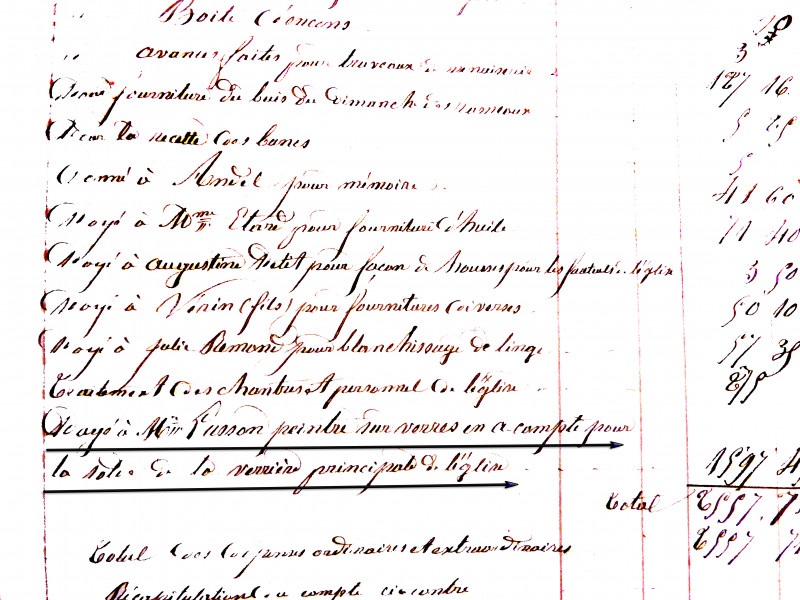 " Boite d'encens 20
" avances faites pour travaux de menuiserie 3
Payé fourniture du buis du Dimanche des rameaux 187 16
Pour la recette des bancs 5 25
Donné à André pour mémoire 5
Payé à Mme Etard pour fourniture d'huile 41 60
Payé à augustine Petit pour façon de housses pour les fauteuils de l'église 3 50
Payé à Vérin (fils) pour fournitures diverses 50 10
Payé à julie Remond pour blanchissage de linge 57 35
Traitement des chantres et personnel de l'église 275
Payé à Mr Lusson peintre sur verres en a-compte pour
la de la verrière principale de l'église 1597
Total 2557. 7
Total des dépenses ordinaires et extraordinaires 2557 7
Récapitulation du compte ci-contre